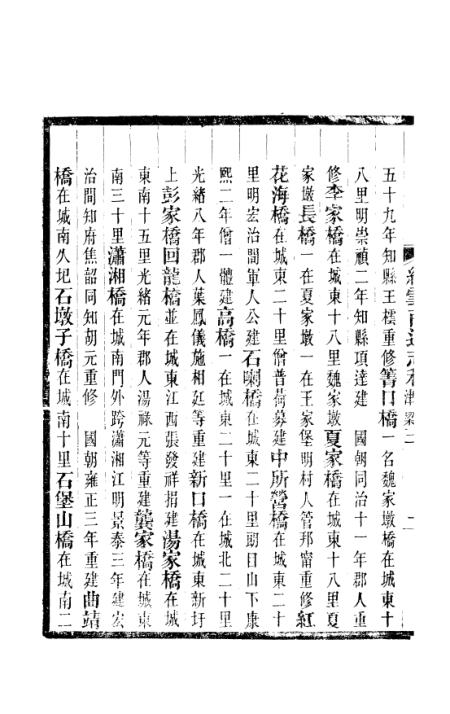 五十九年知縣王橒重修箐口橋一名魏家墩橋在城東十
八里明崇禎二年知縣項達建　國朝同治十一年郡人重
修李家橋在城東十八里魏家墩夏家橋在城東十八里夏
家墩長橋一在夏家墩一在王家堡明村人管邦甯重修紅
花海橋在城東二十里僧普荷募建中所營橋在城東二十
里明宏治間軍人公建石喇橋在城東二十里朗目山下康
熙二年僧一體建高橋一在城東二十里一在城北二十里
光緒八年郡人葉鳳儀施相廷等重建新口橋在城東新圩
上彭家橋回龍橋並在城東江西張發祥捐建湯家橋在城
東南十五里光緒元年郡人湯祿元等重建龔家橋在城東
南三十里瀟湘橋在城南門外跨瀟湘江明景泰三年建宏
治間知府焦韶同知胡元重修　國朝雍正三年重建曲靖
橋在城南久圮石墩子橋在城南十里石堡山橋在城南二